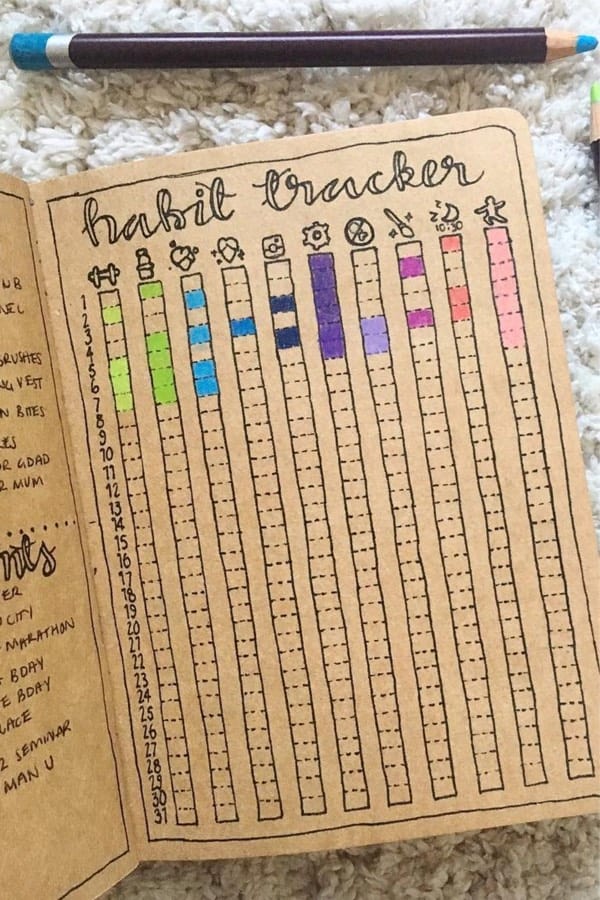 habit tracker
zz
10:30
1
2
3
4
5
6
7
8
9
10
11
12
13
14
15
16
17
18
19
20
21
22
23
24
25
26
27
28
29
30
31
NB
BRUSHES
VEST
BITES
GDAD
MUM
CITY
MARATHON
BDAY
BDAY
SEMINAR
MAN U